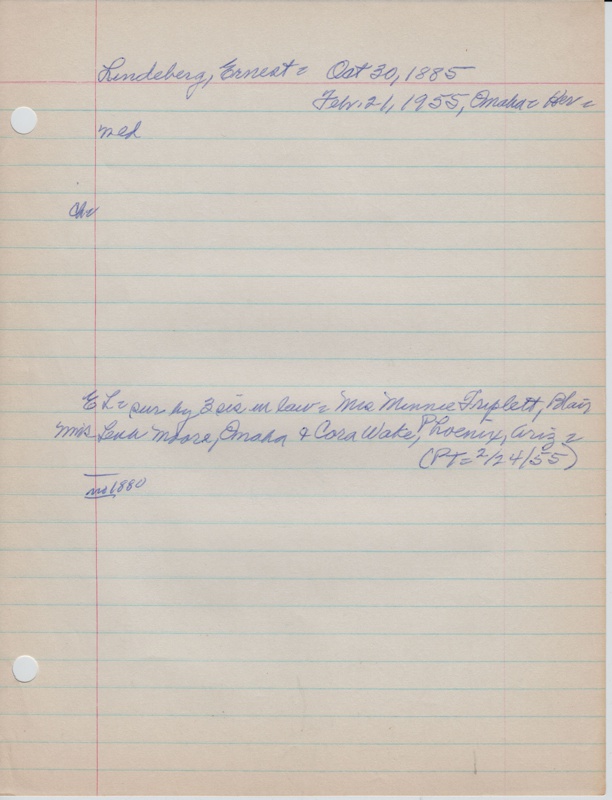 Lindeberg, Ernest = Oct 30, 1885
Febr. 21, 1955, Omaha =
med
Ch=
E L = sur by 3 sis in law = Mrs Minnie Triplett, Blair
Mrs Lena Moore, Omaha & Cora Wake, Phoenix, Ariz =
(PT = 2/24/55)
1880